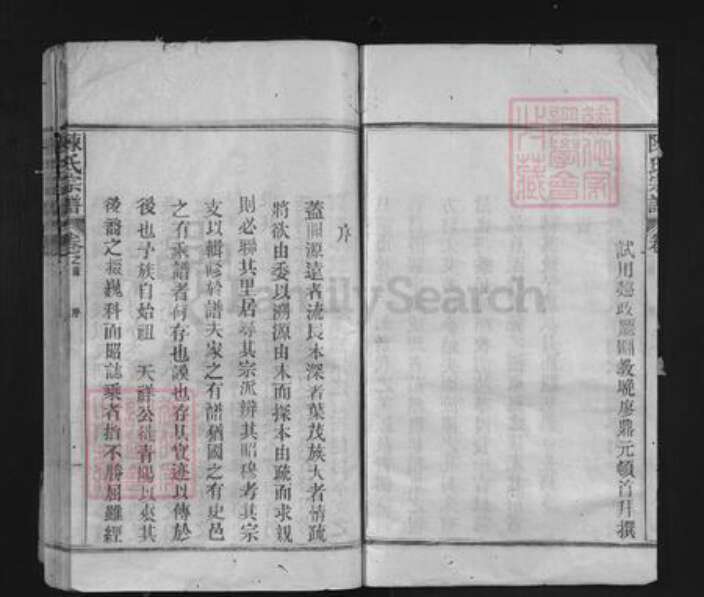 陳氏宗譜
卷
試用
教晚廖鼎元頓首拜撰
序
蓋聞源遠者流長本深者葉茂族大者情疏
將欲由委以溯源由末而探本由疏而求親
則必聯其里居尋其宗派辨其昭穆考其宗
支以輯修於譜夫家之有譜猶國之有史邑
之有乘譜者何存也謨也存其宦迹以傳於
後也予族自始祖 天祥公徙青陽以來其
後裔之掇巍科而昭誌乘者指不勝屈雖經
陳氏宗譜
卷之首
序
一
FamilySearch